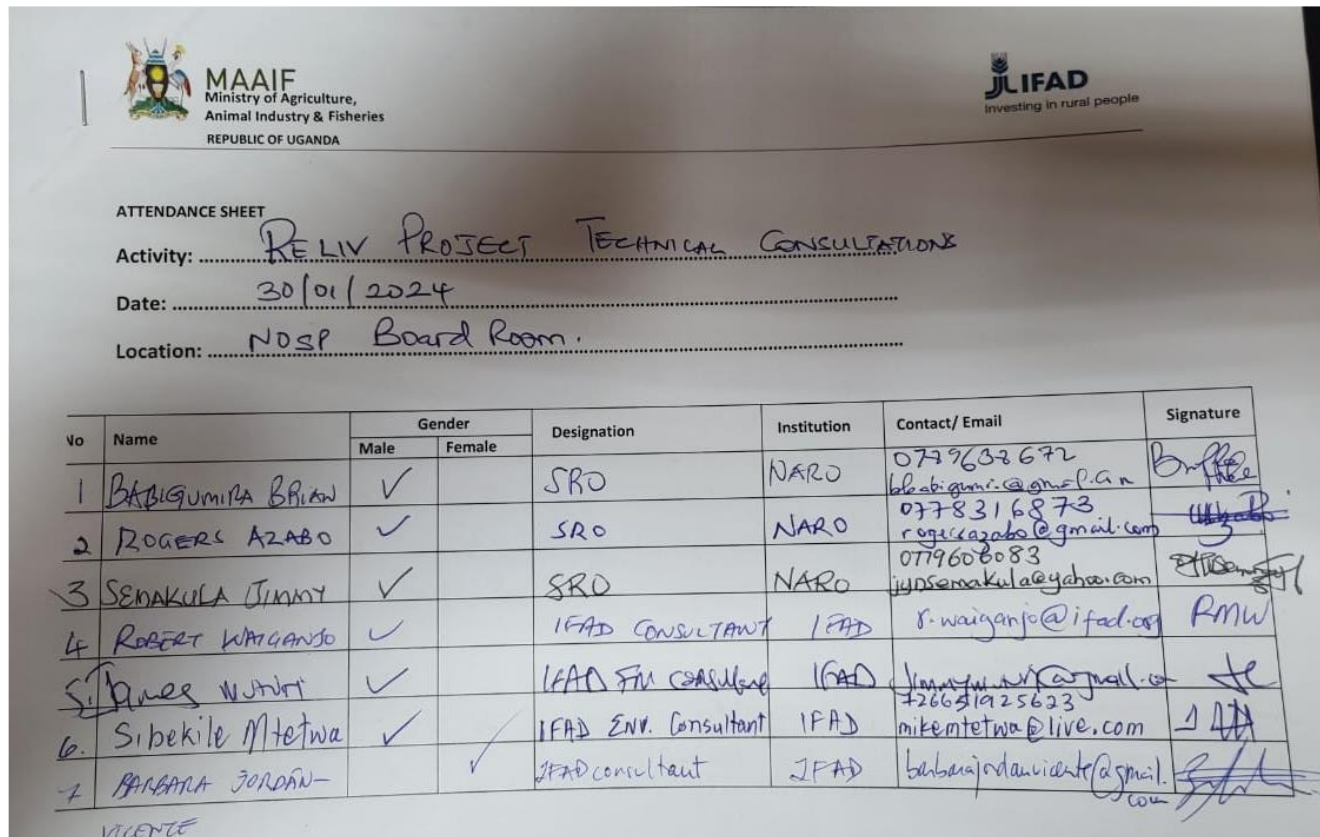 MAAIF
Ministry of Agriculture,
Animal Industry & Fisheries
REPUBLIC OF UGANDA
IFAD
Investing in rural people
ATTENDANCE SHEET
Activity: RELIV PROJECT TECHNICAL CONSULTATIONS
Date: 30/01/2024
Location: NOSP Board Room.
No Name Gender Designation Institution Contact/ Email Signature
Male Female
1 BABIGUMIRA BRIAN ✓ SRO NARO
2 ROGERS AZABO ✓ SRO NARO 0778316873
rogersazabo@gmail.com
3 SEMAKULA JIMMY ✓ SRO NARO 0779606083
jypsemakula@yahoo.com
4 ROBERT WAIGANJO ✓ IFAD CONSULTANT IFAD r.waiganjo@ifad.org RMW
5. James ✓ IFAD FM IFAD
6. Sibekile Mtetwa ✓ IFAD ENV. Consultant IFAD mikemtetwa@live.com
7 BARBARA JORDÁN- ✓ IFAD consultant IFAD barbarajordanvicente@gmail.
com
VICENTE